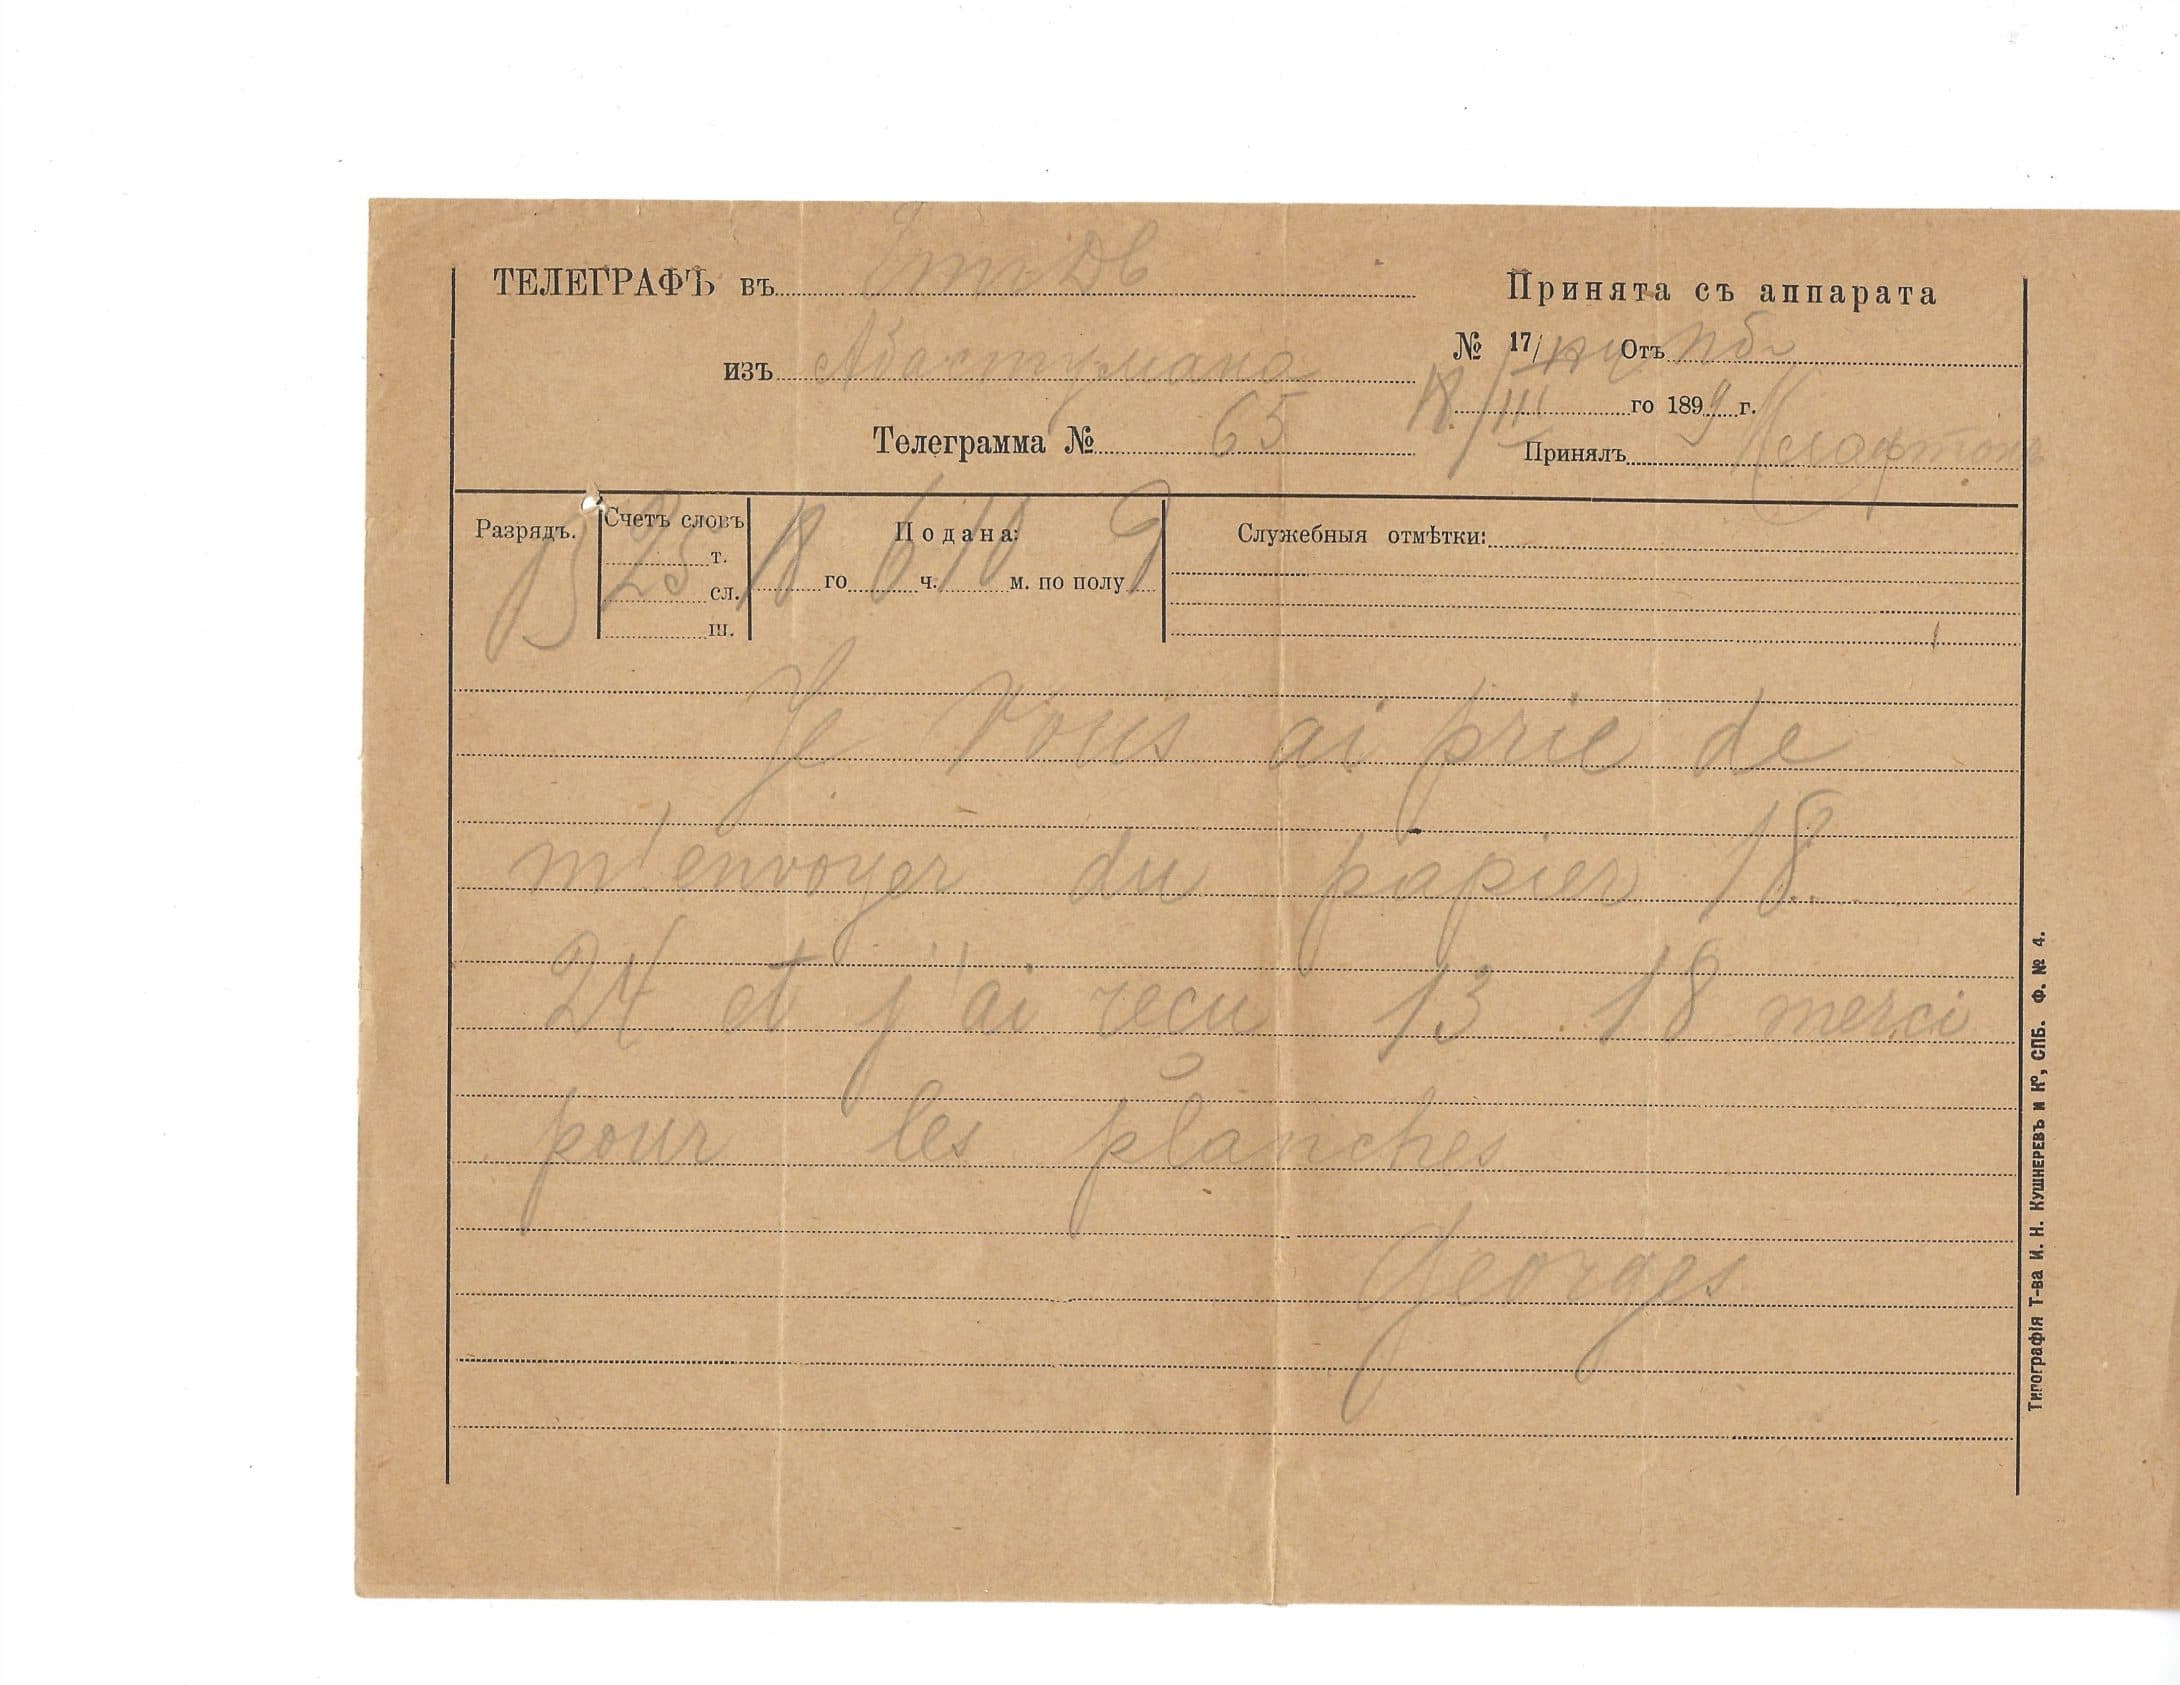 ТЕЛЕГРАФЪ въ
Принята съ аппарата
изъ Абастумана
№ 17/ Отъ Пб
18/III го 1899 г.
Телеграмма № 65
Принялъ
Разрядъ.
Счетъ словъ
25
т.
сл.
ш.
Подана:
18 го 6 ч. 10 м. по полу
Служебныя отмѣтки:
Je vous ai prie de
m'envoyer du papier 18
24 et j'ai reçu 13 18 merci
pour les planches
Georges
Типографія Т-ва И. Н. Кушнеревъ и К°, СПБ. Ф. № 4.